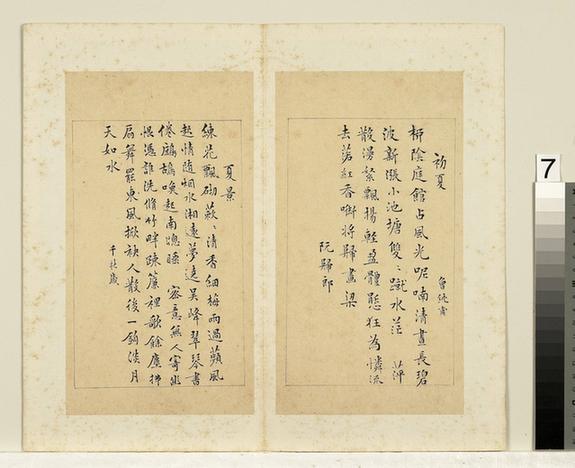 初夏
曾純甫
柳陰庭館占風光呢喃清晝長碧
波新漲小池塘雙〻蹴水茫 萍
散漫絮飄揚輕盈體態狂為憐流
去落紅香銜將歸畫梁
阮歸郎
夏景
練花飄砌蔌〻清香細梅雨過蘋風
起情隨湘水遠夢遶吳峰翠琴書
倦鷓鴣喚起南窻睡 密意無人寄幽
恨憑誰洗脩竹畔疎簾裡歌餘塵拂
扇舞罷風掀袂人散後一鈎淡月
天如水
千秋歲